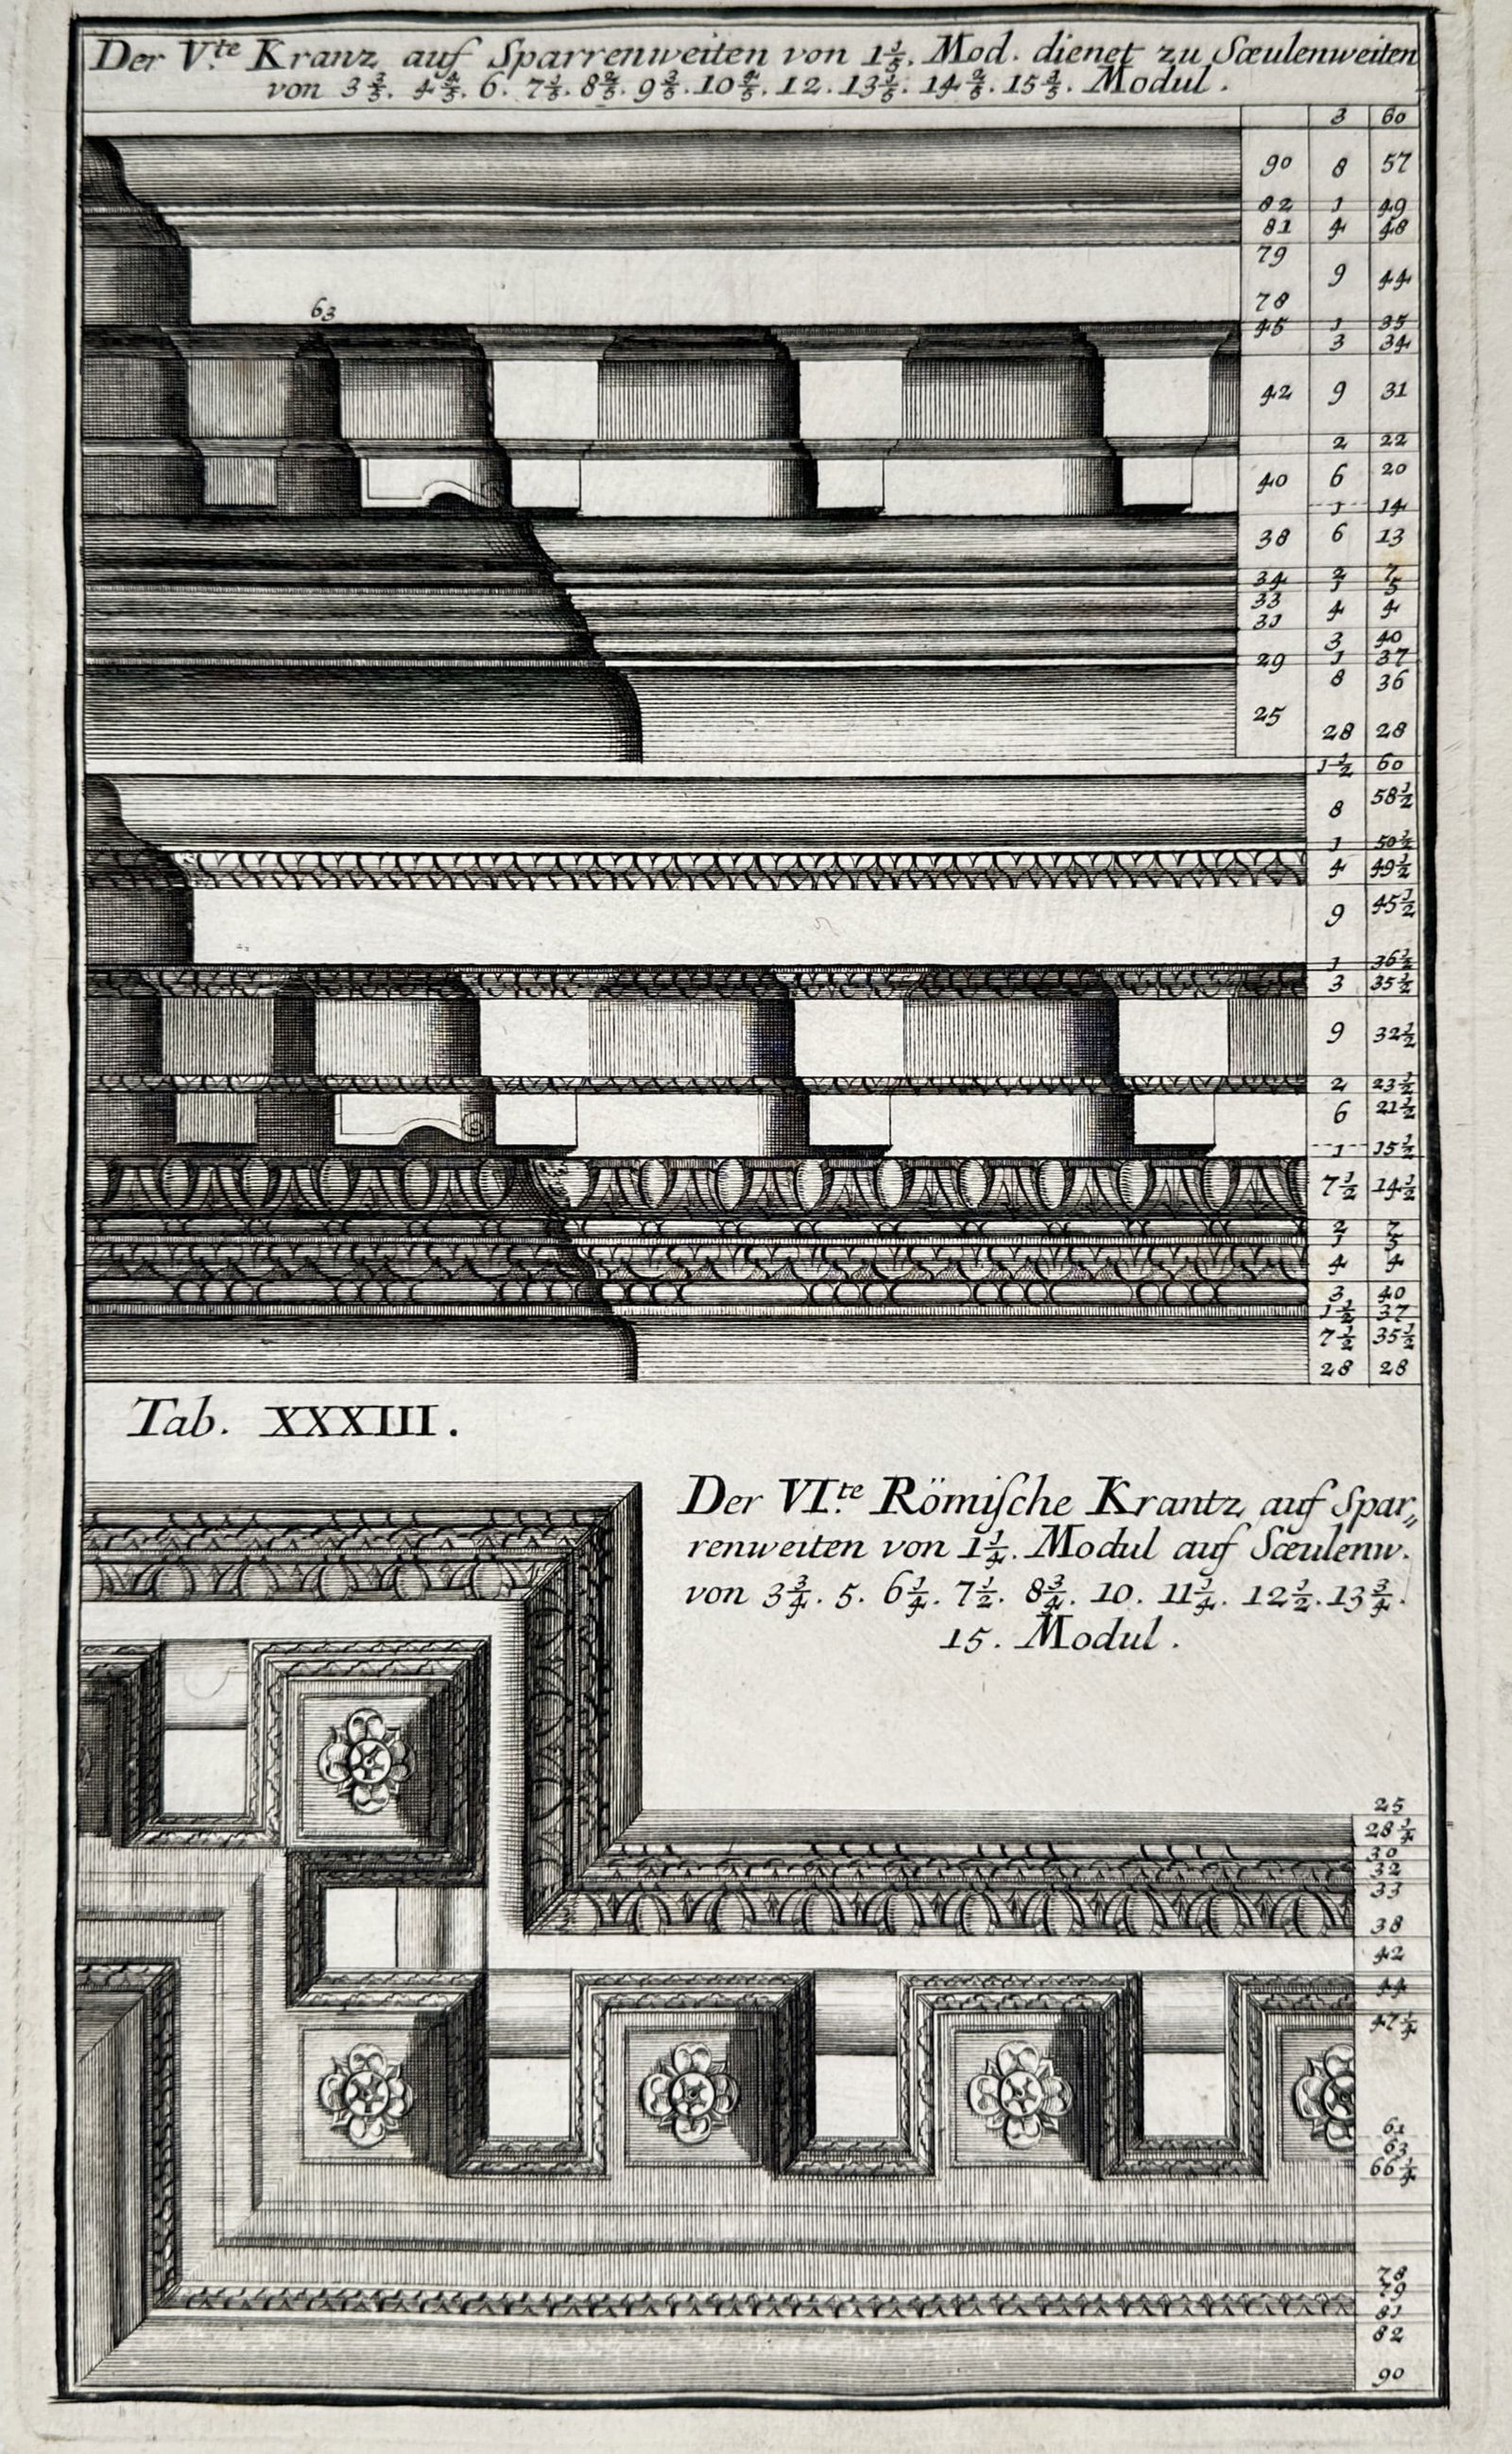 Der V.te Kranz auf Sparrenweiten von 1 1/5. Mod. dienet zu Sæulenweiten
von 3 3/5. 4 4/5. 6. 7 1/5. 8 2/5. 9 3/5. 10 4/5. 12. 13 1/5. 14 2/5. 15 3/5. Modul.
3 60
90 8 57
82 1 49
81 4 48
79
9 44
78
63
45 1 35
3 34
42 9 31
2 22
40 6 20
1 14
38 6 13
34 2 7
1 5
33
4 4
31
3 40
29 1 37
8 36
25
28 28
1 1/2 60
8 58 1/2
1 50 1/2
4 49 1/2
9 45 1/2
1 36 1/2
3 35 1/2
9 32 1/2
2 23 1/2
6 21 1/2
1 15 1/2
7 1/2 14 1/2
2 7
1 5
4 4
3 40
1 1/2 37
7 1/2 35 1/2
28 28
Tab. XXXIII.
Der VI.te Römiſche Krantz auf Spar„
renweiten von 1 1/4. Modul auf Sæulenw.
von 3 3/4. 5. 6 1/4. 7 1/2. 8 3/4. 10. 11 1/4. 12 1/2. 13 3/4.
15. Modul.
25
28 1/4
30
32
33
38
42
44
47 1/4
61
63
66 1/4
78
79
81
82
90